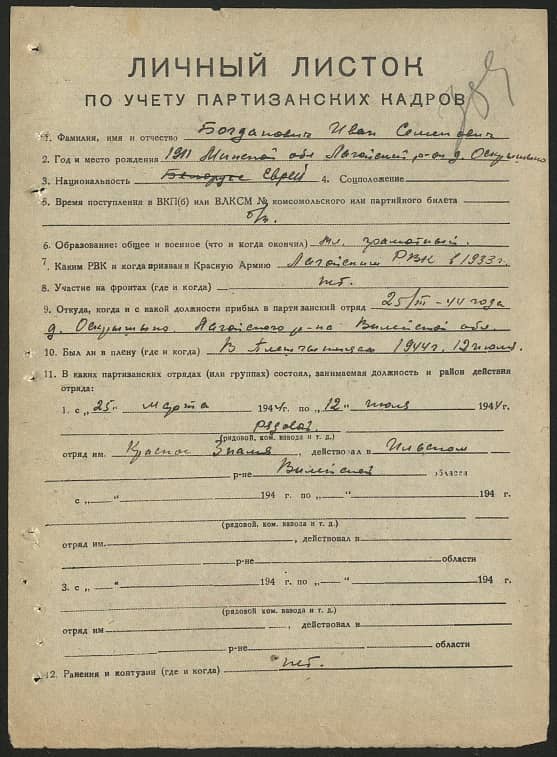 ЛИЧНЫЙ ЛИСТОК
ПО УЧЕТУ ПАРТИЗАНСКИХ КАДРОВ
1. Фамилия, имя и отчество Богданович Иван Семенович
2. Год и место рождения 1911 Минской обл Логойский р-он д. Оскрышыно
3. Национальность Белорус Еврей 4. Соцположение
5. Время поступления в ВКП(б) или ВЛКСМ № комсомольского или партийного билета
б/п.
6. Образование: общее и военное (что и когда окончил) мл. грамотный.
7. Каким РВК и когда призван в Красную Армию Логойским РВК в 1933 г.
8. Участие на фронтах (где и когда) нет.
9. Откуда, когда и с какой должности прибыл в партизанский отряд 25/III-44 года
д. Оскрышыно. Логойского р-на Вилейской обл.
10. Был ли в плену (где и когда) В 1944г. 12 июля.
11. В каких партизанских отрядах (или группах) состоял, занимаемая должность и район действия
отряда:
1. с „25" марта 1944 г. по „12" июля 1944 г.
рядовой
(рядовой, ком. взвода и т. д.)
отряд им. Красное Знамя, действовал в Ильском
р-не Вилейской области
с „ " 194 г. по „ " 194 г.
(рядовой, ком. взвода и т. д.)
отряд им. , действовал в
р-не области
3. с „ " 194 г. по „ " 194 г.
(рядовой, ком. взвода и т. д.)
отряд им , действовал в
р-не области
12. Ранения и контузии (где и когда) нет.